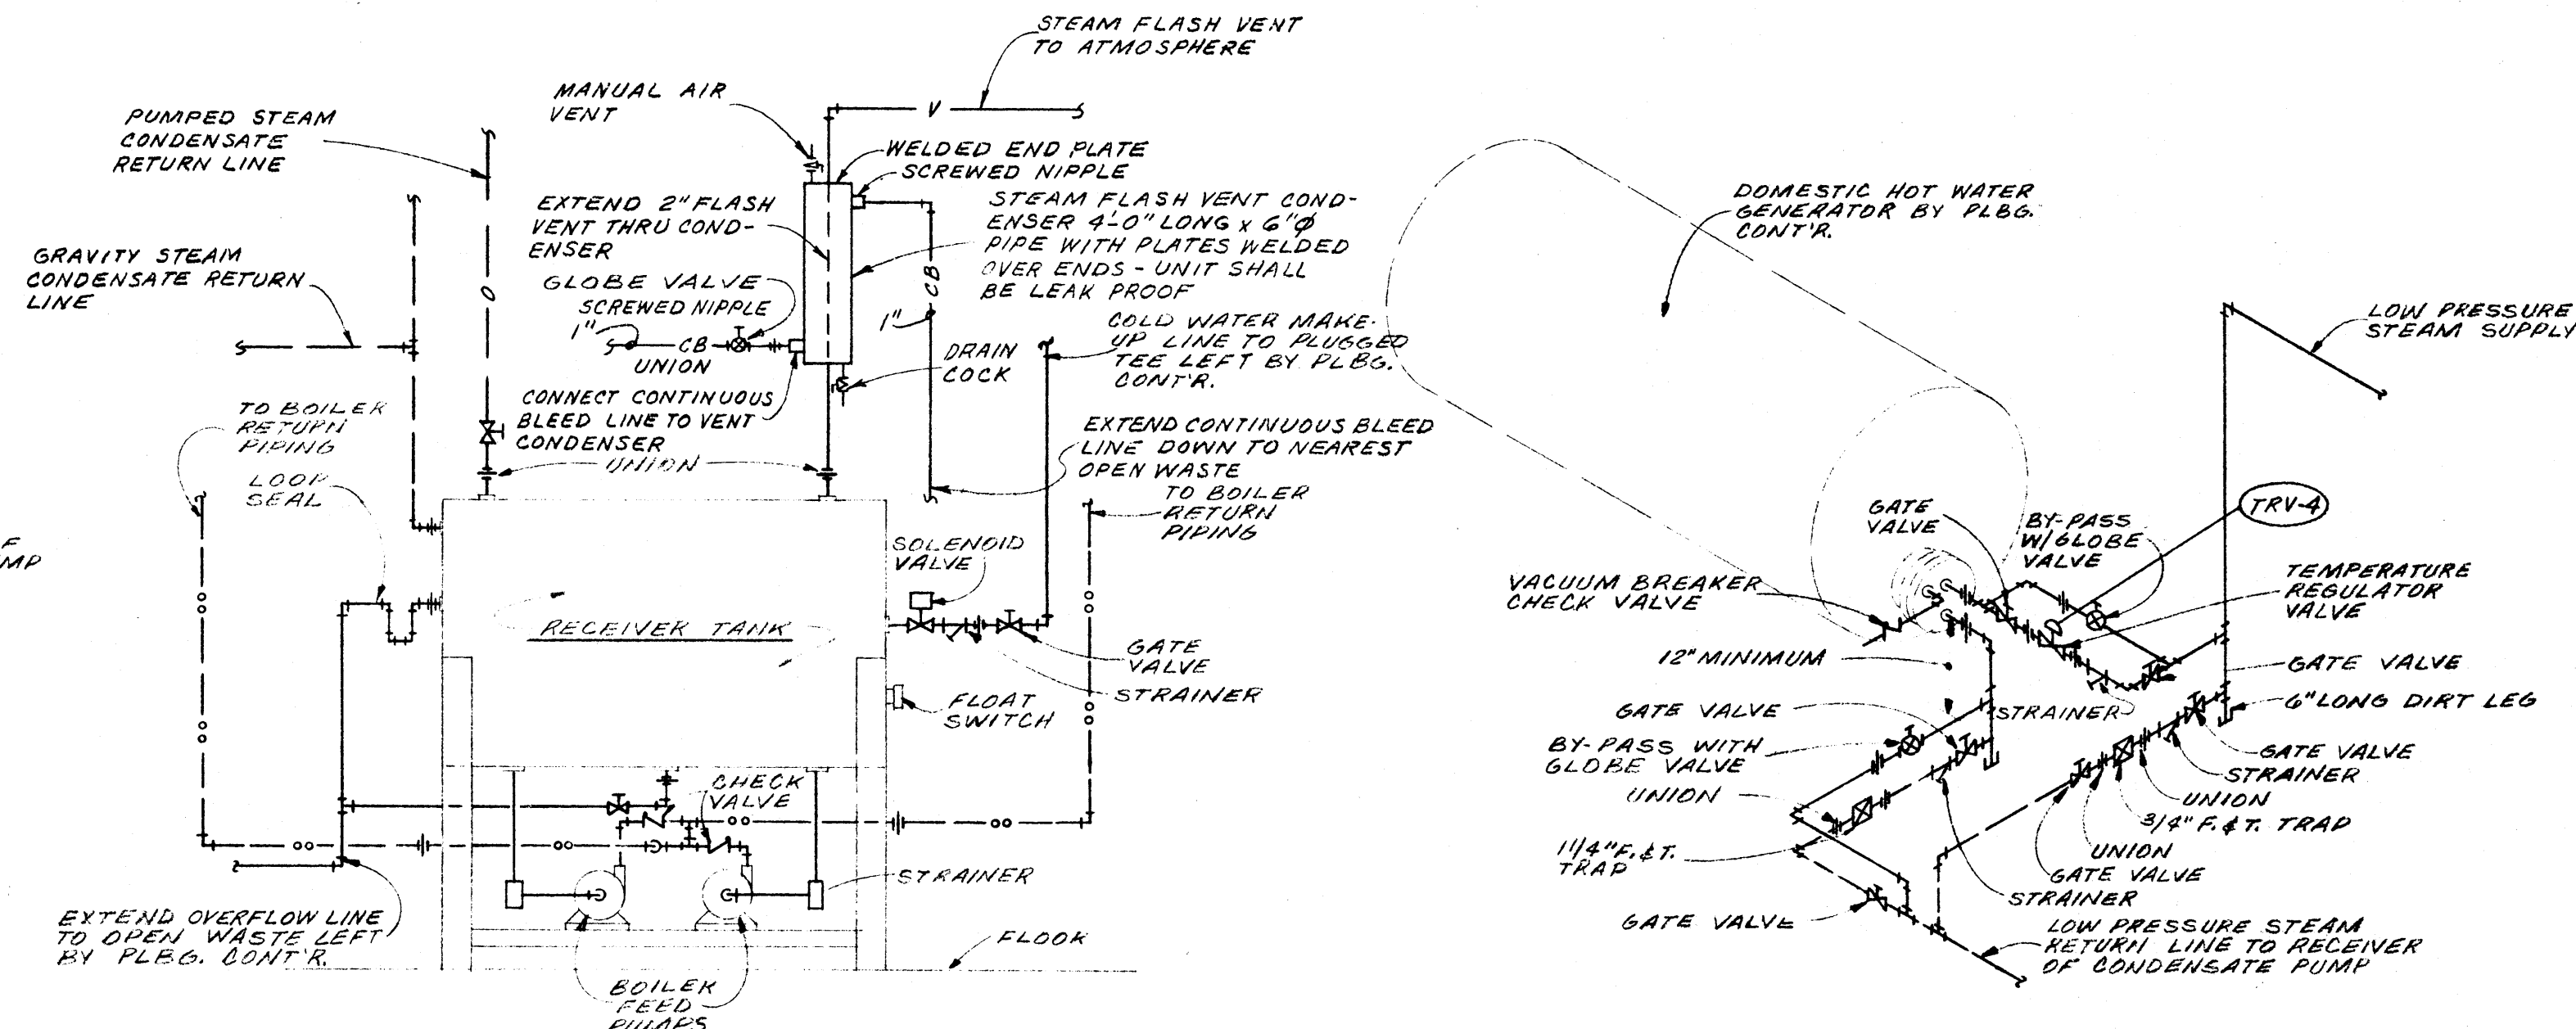 STEAM FLASH VENT
TO ATMOSPHERE
MANUAL AIR
VENT
V
PUMPED STEAM
CONDENSATE
RETURN LINE
WELDED END PLATE
SCREWED NIPPLE
EXTEND 2" FLASH
VENT THRU COND-
ENSER
STEAM FLASH VENT COND-
ENSER 4'-0" LONG x 6"Ø
PIPE WITH PLATES WELDED
OVER ENDS - UNIT SHALL
BE LEAK PROOF
GRAVITY STEAM
CONDENSATE RETURN
LINE
O
GLOBE VALVE
SCREWED NIPPLE
1"
CB
UNION
CB
1"
COLD WATER MAKE-
UP LINE TO PLUGGED
TEE LEFT BY PLBG.
CONT'R.
DRAIN
COCK
CONNECT CONTINUOUS
BLEED LINE TO VENT
CONDENSER
UNION
TO BOILER
RETURN
PIPING
LOOP
SEAL
EXTEND CONTINUOUS BLEED
LINE DOWN TO NEAREST
OPEN WASTE
TO BOILER
RETURN
PIPING
F
MP
SOLENOID
VALVE
RECEIVER TANK
GATE
VALVE
STRAINER
FLOAT
SWITCH
CHECK
VALVE
STRAINER
EXTEND OVERFLOW LINE
TO OPEN WASTE LEFT
BY PLBG. CONT'R.
FLOOR
BOILER
FEED
PUMPS
DOMESTIC HOT WATER
GENERATOR BY PLBG.
CONT'R.
LOW PRESSURE
STEAM SUPPLY
GATE
VALVE
BY-PASS
W/GLOBE
VALVE
TRV-4
VACUUM BREAKER
CHECK VALVE
TEMPERATURE
REGULATOR
VALVE
12" MINIMUM
GATE VALVE
6" LONG DIRT LEG
GATE VALVE
STRAINER
BY-PASS WITH
GLOBE VALVE
GATE VALVE
STRAINER
UNION
UNION
3/4" F. & T. TRAP
1 1/4" F. & T.
TRAP
UNION
GATE VALVE
STRAINER
GATE VALVE
LOW PRESSURE STEAM
RETURN LINE TO RECEIVER
OF CONDENSATE PUMP